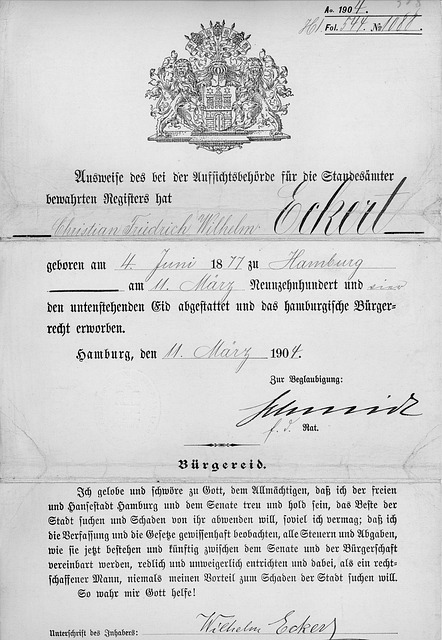 Ao. 1904.
Fol. 544. No 1081.
Ausweise des bei der Aufsichtsbehörde für die Standesämter
bewahrten Registers hat
Christian Friedrich Wilhelm Eckert
geboren am 4. Juni 1877 zu Hamburg
am 11. März Neunzehnhundert und vier
den untenstehenden Eid abgestattet und das hamburgische Bürger-
recht erworben.
Hamburg, den 11. März 1904.
Zur Beglaubigung:
Schmidt
f. d. Rat.
Bürgereid.
Ich gelobe und schwöre zu Gott, dem Allmächtigen, daß ich der freien
und Hansestadt Hamburg und dem Senate treu und hold sein, das Beste der
Stadt suchen und Schaden von ihr abwenden will, soviel ich vermag; daß ich
die Verfassung und die Gesetze gewissenhaft beobachten, alle Steuern und Abgaben,
wie sie jetzt bestehen und künftig zwischen dem Senate und der Bürgerschaft
vereinbart werden, redlich und unweigerlich entrichten und dabei, als ein recht-
schaffener Mann, niemals meinen Vorteil zum Schaden der Stadt suchen will.
So wahr mir Gott helfe!
Unterschrift des Inhabers: Wilhelm Eckert